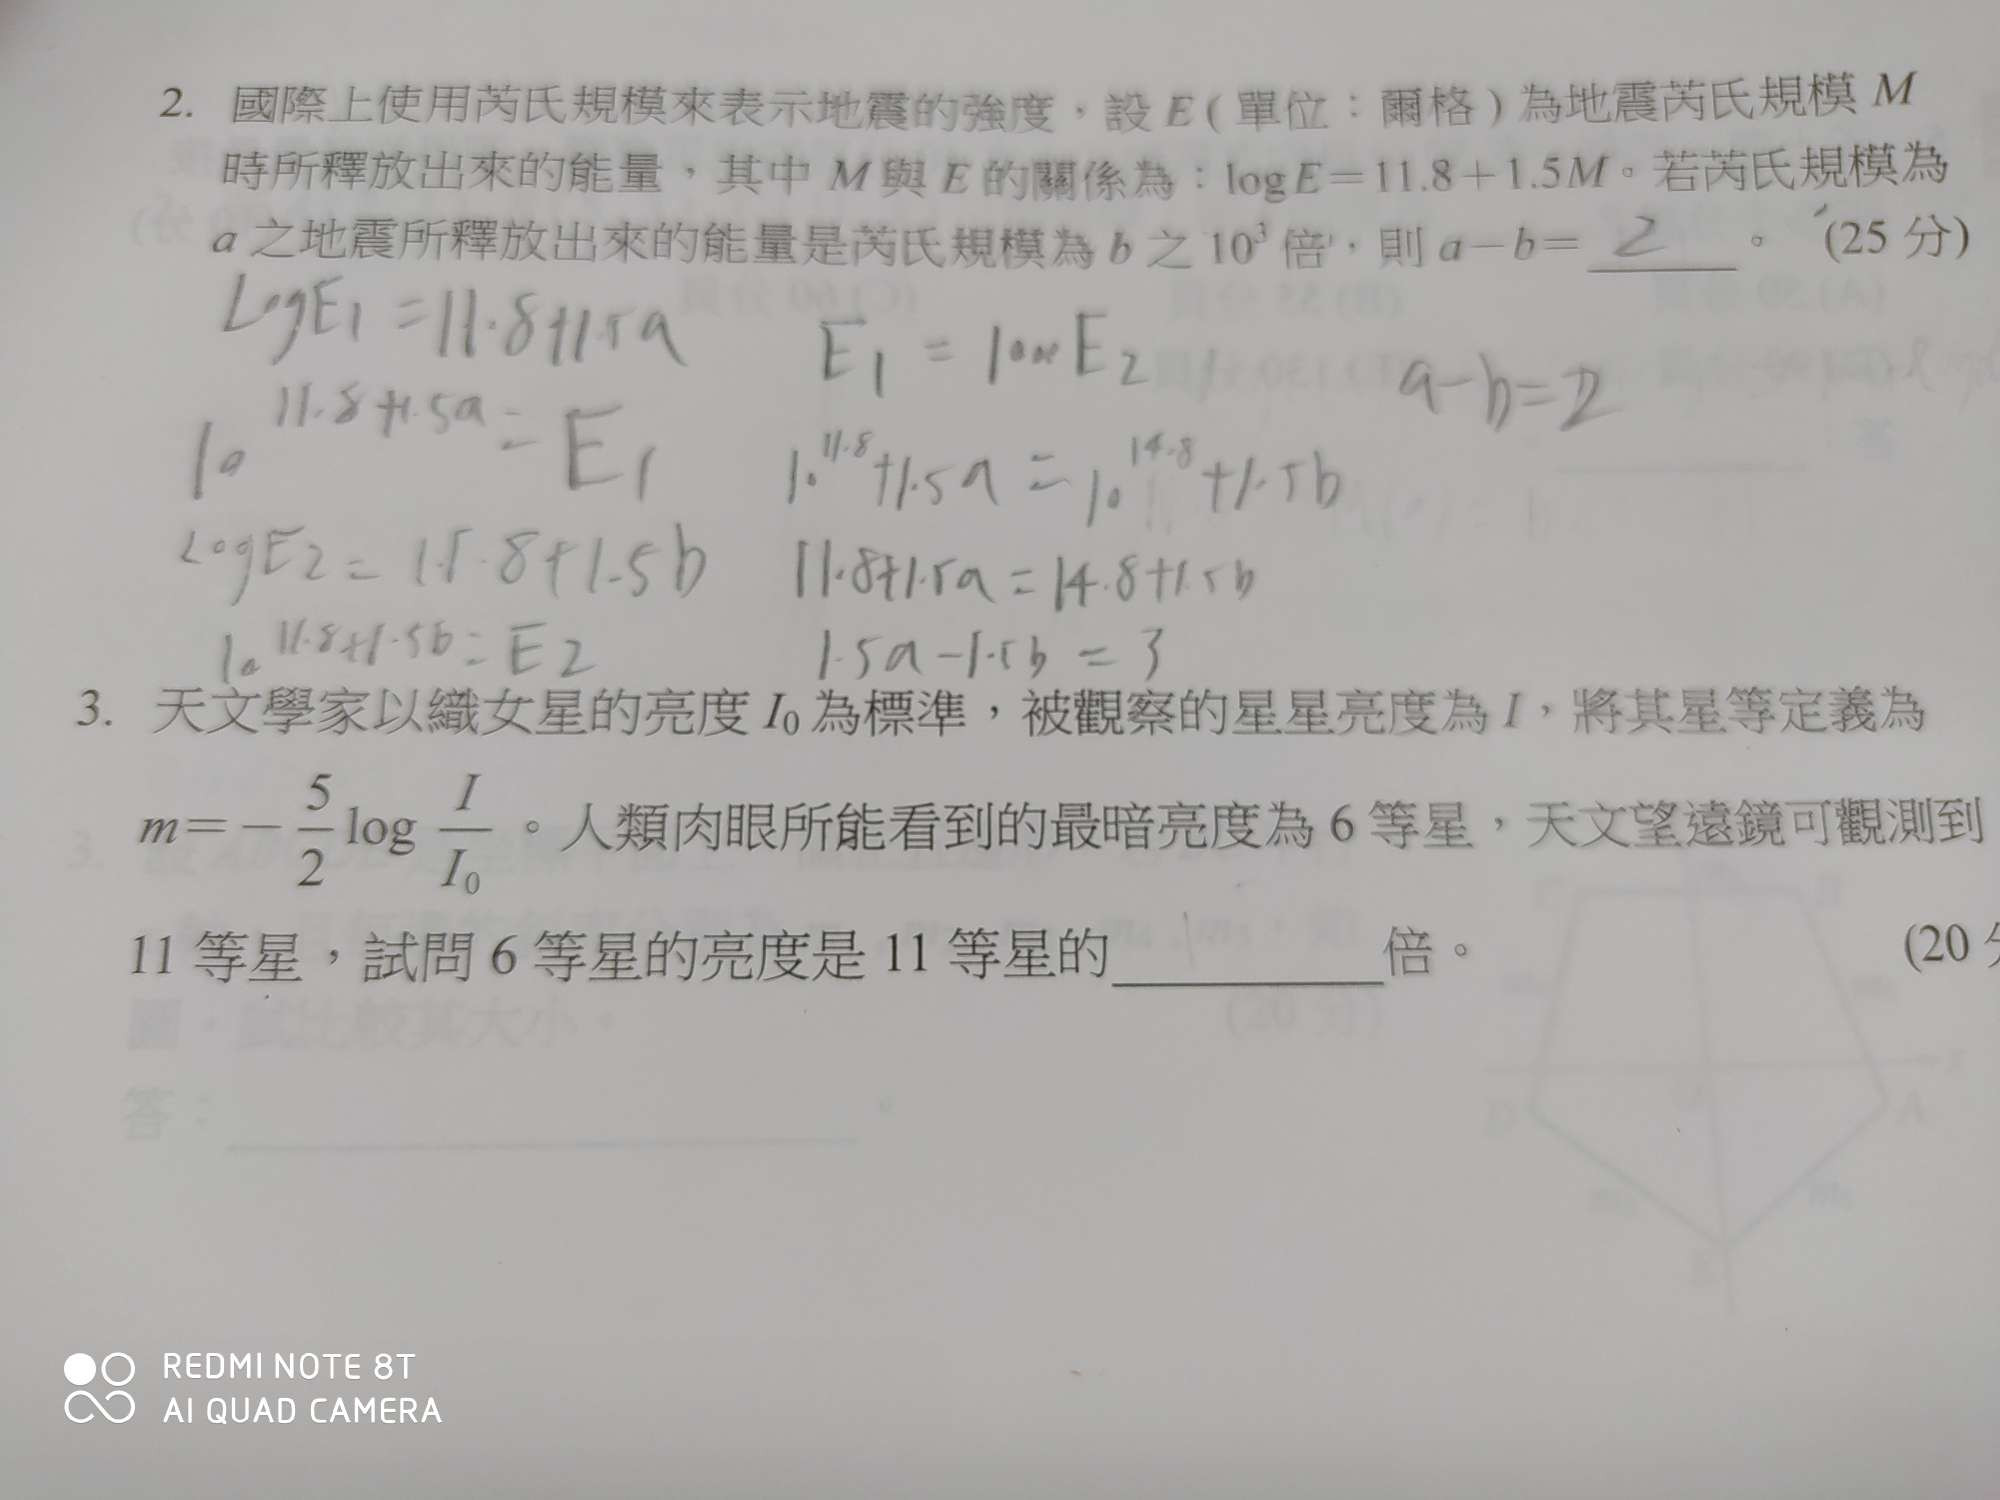 2. 國際上使用芮氏規模來表示地震的強度，設 E ( 單位：爾格 ) 為地震芮氏規模 M
時所釋放出來的能量，其中 M 與 E 的關係為：log E = 11.8 + 1.5M。若芮氏規模為
a 之地震所釋放出來的能量是芮氏規模為 b 之 10³ 倍，則 a − b = 2 。 (25 分)
LogE1 = 11.8+1.5a
E1 = 1000E2
a-b=2
10^11.8+1.5a = E1
10^11.8 +1.5a = 10^14.8 +1.5b
LogE2 = 11.8+1.5b
11.8+1.5a = 14.8+1.5b
10^11.8+1.5b = E2
1.5a-1.5b = 3
3. 天文學家以織女星的亮度 I₀ 為標準，被觀察的星星亮度為 I，將其星等定義為
m = − 5/2 log I/I₀ 。人類肉眼所能看到的最暗亮度為 6 等星，天文望遠鏡可觀測到
11 等星，試問 6 等星的亮度是 11 等星的________倍。 (20
答：
REDMI NOTE 8T
AI QUAD CAMERA